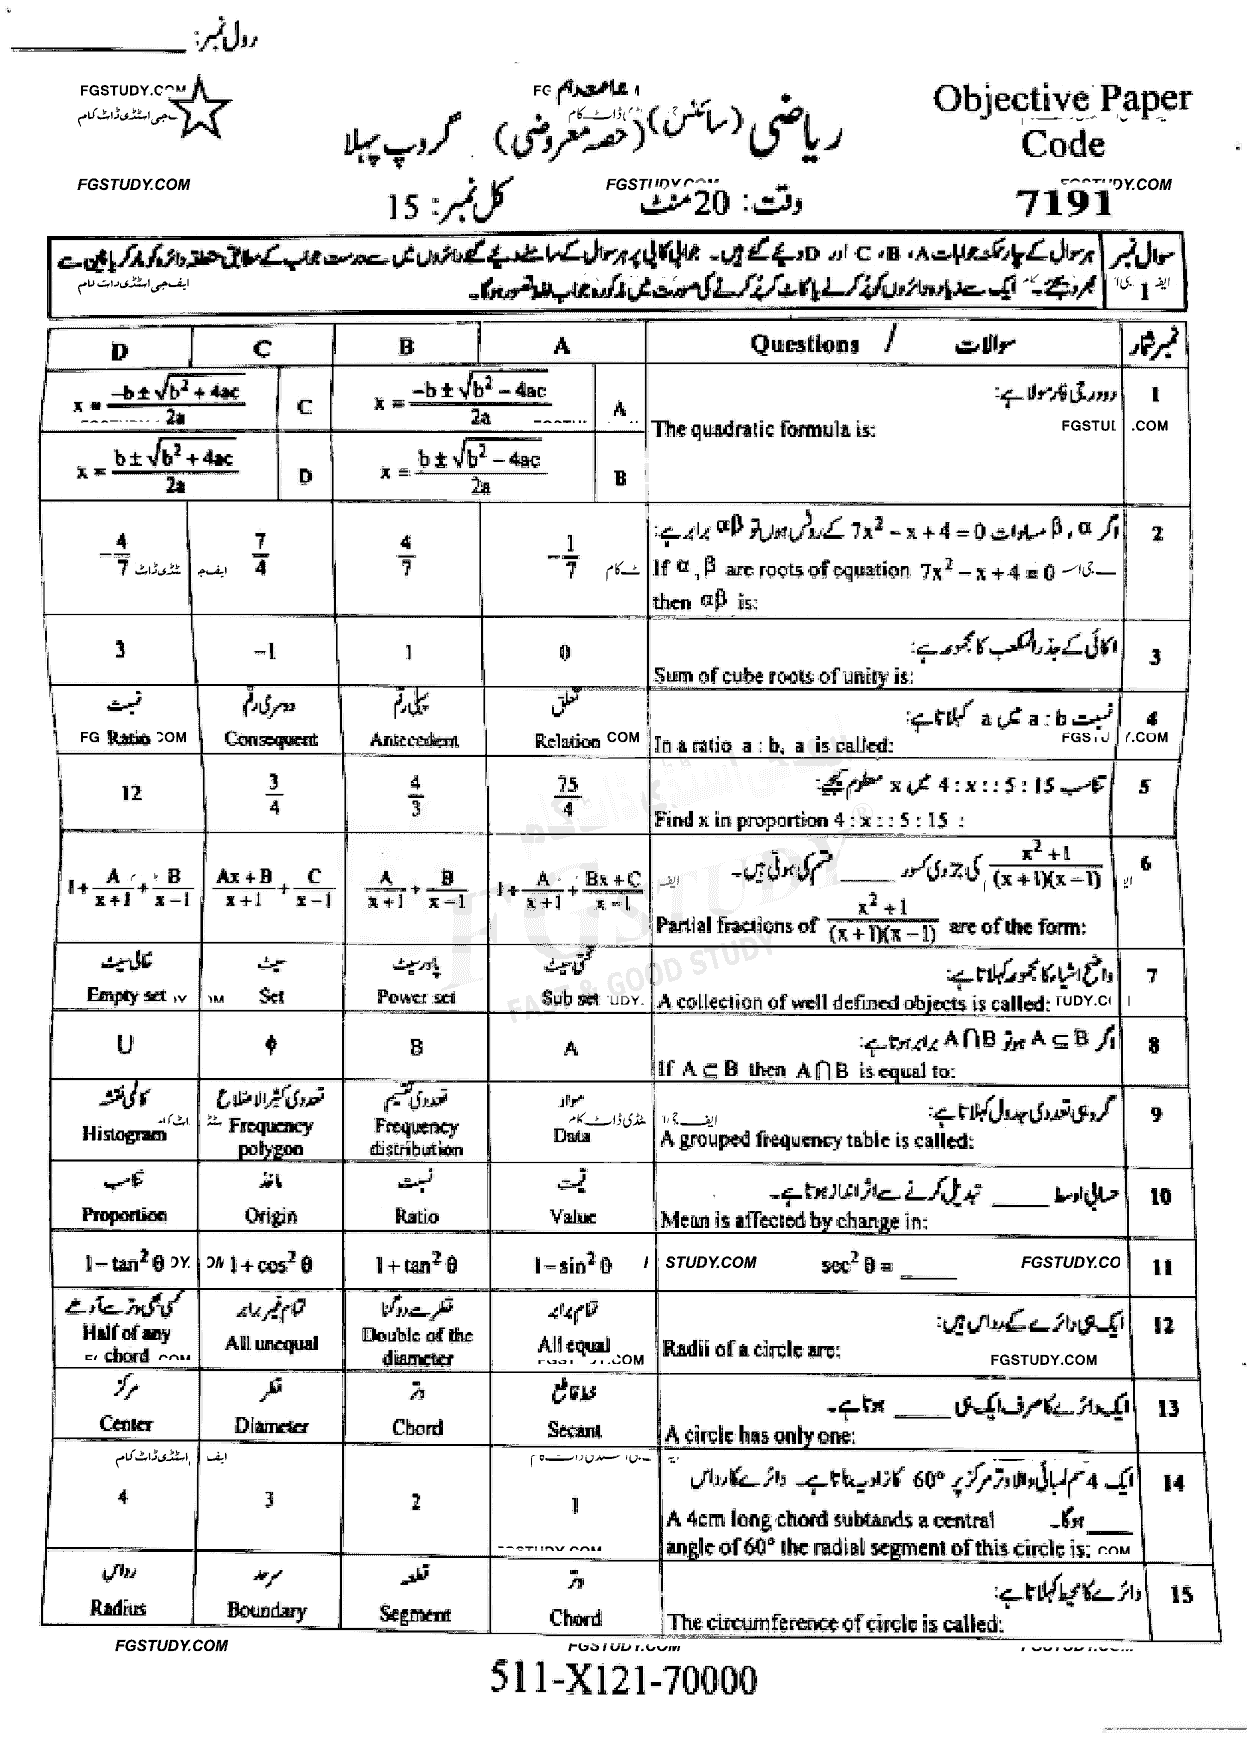 رول نمبر:
FGSTUDY.COM
Objective Paper
Code
7191
ریاضی (سائنس) (حصہ معروضی) گروپ پہلا
FGSTUDY.COM
وقت: 20 منٹ
کل نمبر: 15
سوال نمبر 1
ہر سوال کے چار ممکنہ جوابات A، B، C اور D دیے گئے ہیں۔ جوابی کاپی پر ہر سوال کے سامنے دیے گئے دائروں میں سے درست جواب کے مطابق متعلقہ دائرہ کو مارکر یا پین سے
بھر دیجئے۔ ایک سے زیادہ دائروں کو پُر کرنے یا کاٹ کر پُر کرنے کی صورت میں مذکورہ جواب غلط تصور ہوگا۔
نمبر شمار سوالات / Questions A B C D
1 دو درجی فارمولا ہے:
The quadratic formula is:
A x = (-b ± √(b² - 4ac)) / 2a
C x = (-b ± √(b² + 4ac)) / 2a
B x = (b ± √(b² - 4ac)) / 2a
D x = (b ± √(b² + 4ac)) / 2a
2 اگر α , β مساوات 7x² - x + 4 = 0 کے روٹس ہوں تو αβ برابر ہے:
If α , β are roots of equation 7x² - x + 4 = 0
then αβ is:
-1/7 4/7 7/4 -4/7
3 اکائی کے جذرالمکعب کا مجموعہ ہے:
Sum of cube roots of unity is:
0 1 -1 3
4 نسبت a : b میں a کہلاتا ہے:
In a ratio a : b, a is called:
تعلق پہلی رقم دوسری رقم نسبت
Relation Antecedent Consequent Ratio
5 تناسب 4 : x : : 5 : 15 میں x معلوم کیجیے:
Find x in proportion 4 : x : : 5 : 15 :
75/4 4/3 3/4 12
6 (x² + 1)/((x + 1)(x - 1)) کی جزوی کسور ____ قسم کی ہوتی ہیں۔
Partial fractions of (x² + 1)/((x + 1)(x - 1)) are of the form:
1 + A/(x+1) + (Bx + C)/(x-1) A/(x+1) + B/(x-1) (Ax + B)/(x+1) + C/(x-1) 1 + A/(x+1) + B/(x-1)
7 واضح اشیاء کا مجموعہ کہلاتا ہے:
A collection of well defined objects is called:
تحتی سیٹ پاور سیٹ سیٹ خالی سیٹ
Sub set Power set Set Empty set
8 اگر A ⊆ B ہو تو A ∩ B برابر ہوتا ہے:
If A ⊆ B then A ∩ B is equal to:
A B ϕ U
9 گروہی تعددی جدول کہلاتا ہے:
A grouped frequency table is called:
مواد تعددی تقسیم تعددی کثیرالاضلاع کالمی نقشہ
Data Frequency distribution Frequency polygon Histogram
10 حسابی اوسط ____ تبدیل کرنے سے اثر انداز ہوتا ہے۔
Mean is affected by change in:
قیمت نسبت ماخذ تناسب
Value Ratio Origin Proportion
11 sec² θ = ____
1 - sin² θ 1 + tan² θ 1 + cos² θ 1 - tan² θ
12 ایک ہی دائرے کے رداس ہیں:
Radii of a circle are:
تمام برابر قطر سے دوگنا تمام غیر برابر کسی بھی وتر سے آدھے
All equal Double of the diameter All unequal Half of any chord
13 ایک دائرے کا صرف ایک ہی ____ ہوتا ہے۔
A circle has only one:
خط قاطع وتر قطر مرکز
Secant Chord Diameter Center
14 ایک 4 سم لمبائی والا وتر مرکز پر 60° کا زاویہ بناتا ہے۔ دائرے کا رداس
____ ہوگا۔
A 4cm long chord subtands a central
angle of 60° the radial segment of this circle is:
1 2 3 4
15 دائرے کا محیط کہلاتا ہے:
The circumference of circle is called:
وتر قطعہ سرحد رداس
Chord Segment Boundary Radius
FGSTUDY.COM
511-X121-70000